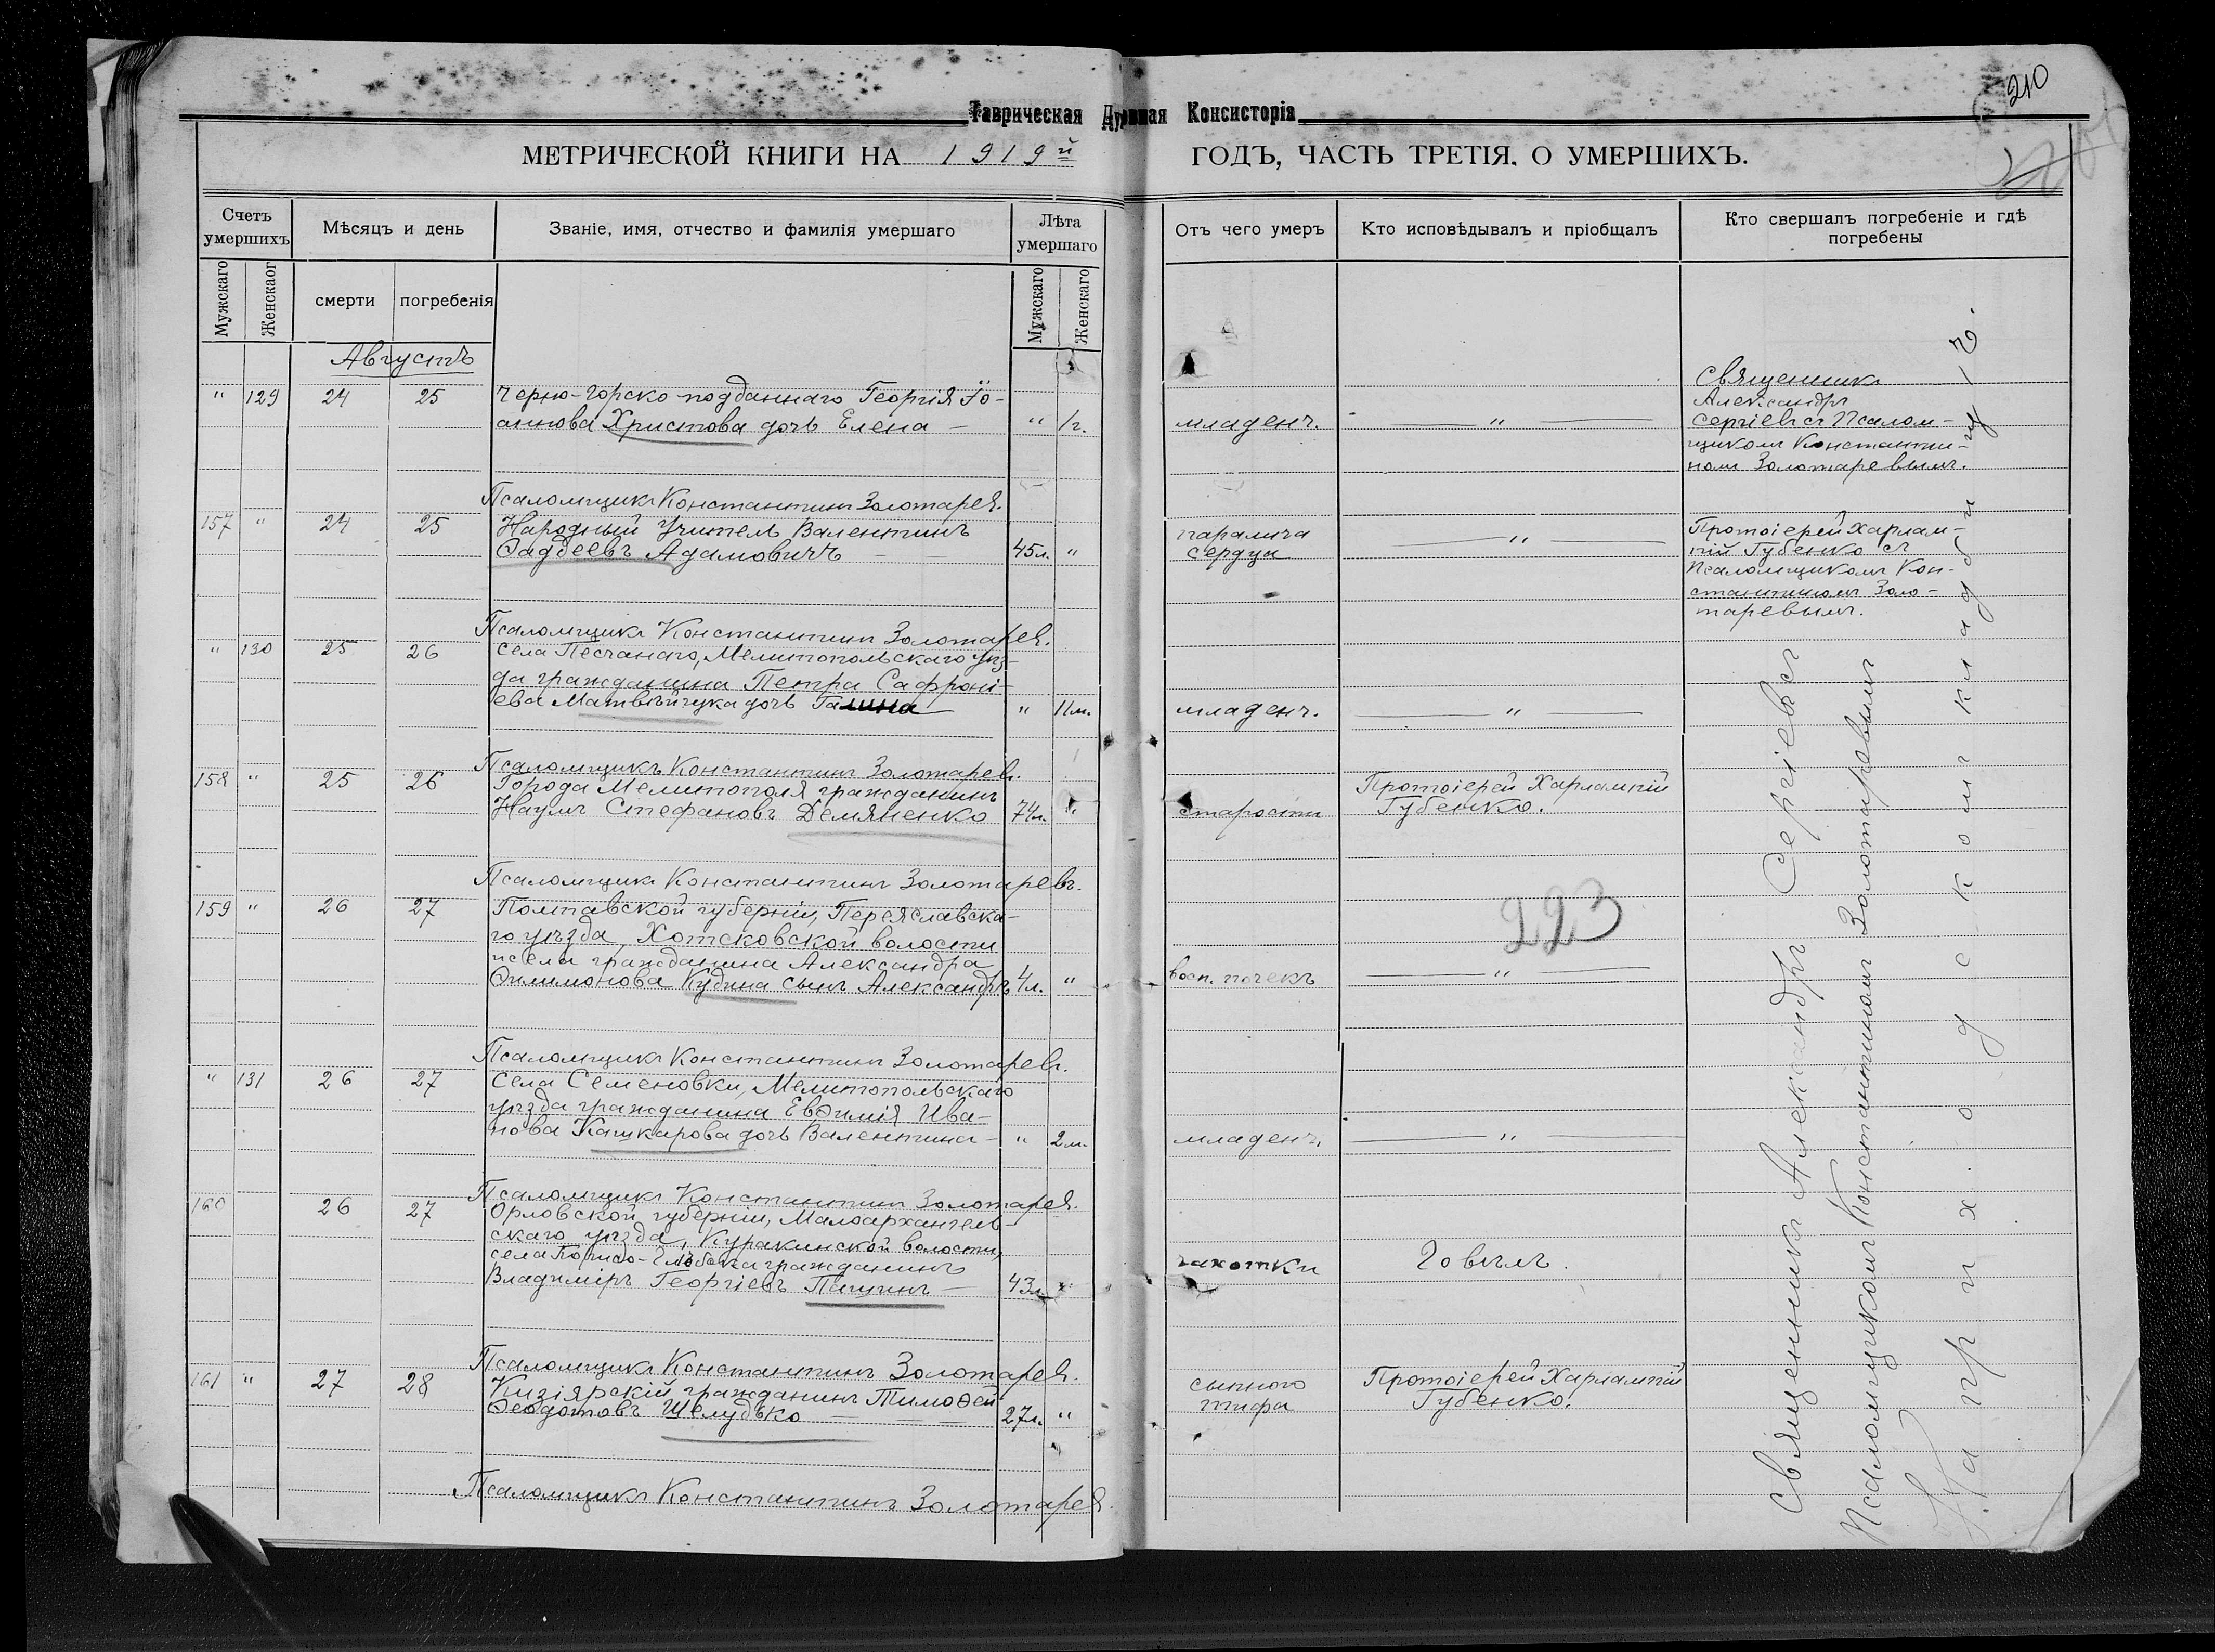 210
Таврическая Духовная Консисторія
МЕТРИЧЕСКОЙ КНИГИ НА 1919й ГОДЪ, ЧАСТЬ ТРЕТІЯ, О УМЕРШИХЪ.
Счетъ умершихъ
Мѣсяцъ и день
Званіе, имя, отчество и фамилія умершаго
Лѣта умершаго
Отъ чего умеръ
Кто исповѣдывалъ и пріобщалъ
Кто свершалъ погребеніе и гдѣ погребены
Мужскаго
Женскаог
смерти
погребенія
Мужскаго
Женскаго
Августъ
" 129 24 25
Черно-Горско-подданнаго Георгія Іо-
аннова Христова дочь Елена —
" 1г.
младенч.
— " —
Священникъ
Александръ
Сергіевъ съ Псалом-
щикомъ Константи-
номъ Золотаревымъ.
Псаломщикъ Константинъ Золотаревъ.
157 " 24 25
Народный Учитель Валентинъ
Фаддеевъ Адамовичъ —
45л. "
паралича
сердца
— " —
Протоіерей Харлам-
пій Губенко съ
Псаломщикомъ Кон-
стантиномъ Золо-
таревымъ.
Псаломщикъ Константинъ Золотаревъ.
" 130 25 26
Села Песчанаго, Мелитопольскаго уѣз-
да гражданина Петра Сафроні-
ева Матвѣйчука дочь Галина
" 11м.
младенч.
— " —
Псаломщикъ Константинъ Золотаревъ.
158 " 25 26
Города Мелитополя гражданинъ
Наумъ Стефановъ Демяненко
74л. "
старости
Протоіерей Харлампій
Губенко.
Псаломщикъ Константинъ Золотаревъ.
159 " 26 27
Полтавской губерніи, Переяславска-
го уѣзда, Хотсковской волости
и села гражданина Александра
Филимонова Кудина сынъ Александръ
4л. "
восп. почекъ
— " —
223
Псаломщикъ Константинъ Золотаревъ.
" 131 26 27
Села Семеновки, Мелитопольскаго
уѣзда гражданина Евѳимія Ива-
нова Кашкарова дочь Валентина —
" 2м.
младенч.
— " —
Псаломщикъ Константинъ Золотаревъ.
160 26 27
Орловской губерніи, Малоархангель-
скаго уѣзда, Куракинской волости,
села гражданинъ
Владиміръ Георгіевъ Пашинъ —
43л. "
чахотки
Говѣлъ.
Псаломщикъ Константинъ Золотаревъ.
161 " 27 28
Кизіярскій гражданинъ Тимоѳей
Ѳеодотовъ Шелудько —
27л. "
сыпного
тифа
Протоіерей Харлампій
Губенко.
Псаломщикъ Константинъ Золотаревъ.
Священникъ Александръ Сергіевъ съ
Псаломщикомъ Константиномъ Золотаревымъ
На приход скомъ кладбищѣ.